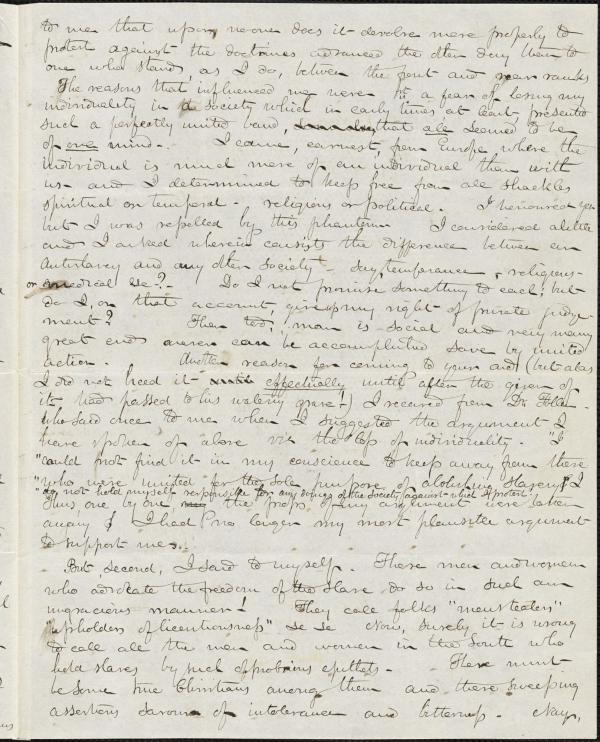 to me that upon no one does it devolve more properly to
protest against the doctrines advanced the often deny them to
one who stands, as I do, between the front and rear ranks
The reasons that influenced me were 1st a fear of losing my
individuality in a society which in early times, at least, presented
such a perfectly united band, that all seemed to be
of one mind -. I came, earnest, from Europe where the
individual is much more of an individual than with
us - and I determined to keep free from all shackles
spiritual or temporal - religious or political. I honoured you
but I was repelled by this phantom. I considered a little
and I asked wherein consists the difference between an
Antislavery and any other society - say, temperance, religious -
or medical &c? - Do I not promise something to each; but
do I, on that account, give up my right of private judge-
ment? Then too, man is social and very many
great ends can never be accomplished save by united
action. Another reason for coming to your aid (but alas
I did not heed it effectually until after the giver of
it had passed to his watery grave!-) I received from Dr. Follen -
who said once to me when I suggested the argument I
have spoken of above viz the loss of individuality. "I
"could not find it in my conscience to keep away from those
"who were united for the sole purpose of abolishing slavery & I
"do not hold myself responsible for any doings of the Society against which I protest."
Thus, one by one, the props of my argument were taken
away & I had no longer my most plausible argument
to support me.
But, second, I said to myself. These men and women
who advocate the freedom of the slave do so in such an
ungracious manner! They call folks "menstealers"
"upholders of licentiousness" &c &c Now, surely it is wrong
to call all the men and women in the South who
hold slaves by such opprobrious epithets - There must
be some true Christians among them and these sweeping
assertions savour of intolerance and bitterness - Nay,